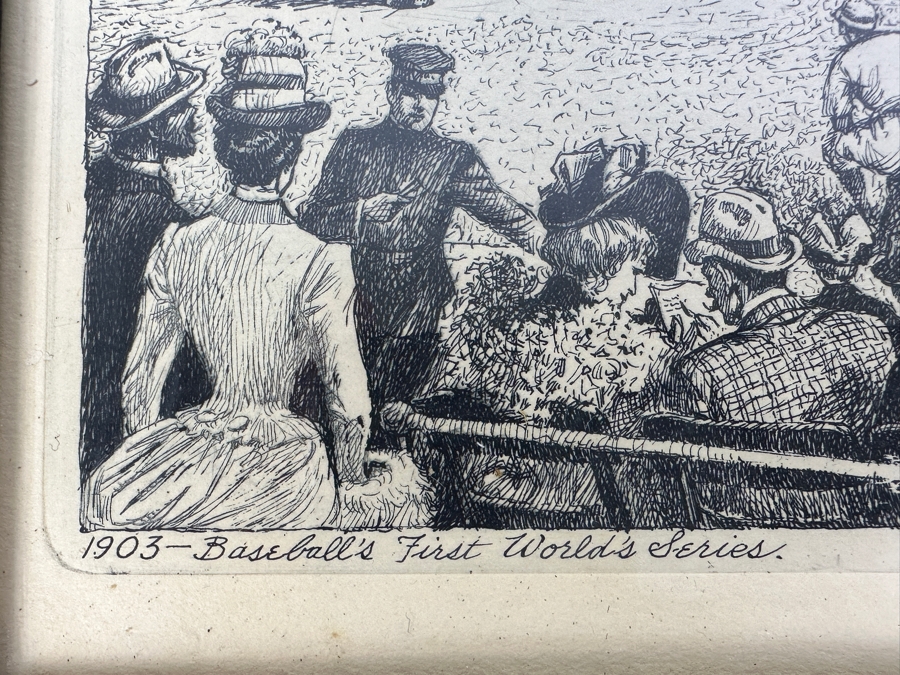 1903—Baseball's First World's Series.